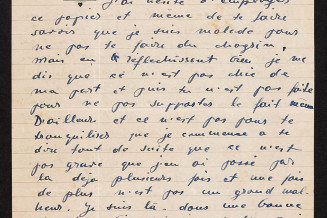 J'ai hésité à employer
ce papier et même de te faire
savoir que je suis malade pour
ne pas te faire du chagrin,
mais en réfléchissant bien je me
dis que ce n'est pas chic de
ma part et puis tu n'est pas faite
pour ne pas supporter le fait meme
D'ailleurs et ce n'est pas pour te
tranquiliser que je commence a te
dire tout de suite que ce n'est
pas grave que j'en ai passé par
la déja plusieurs fois et une fois
de plus n'est pas un grand mal-
heur. Je suis là-dans une bonne